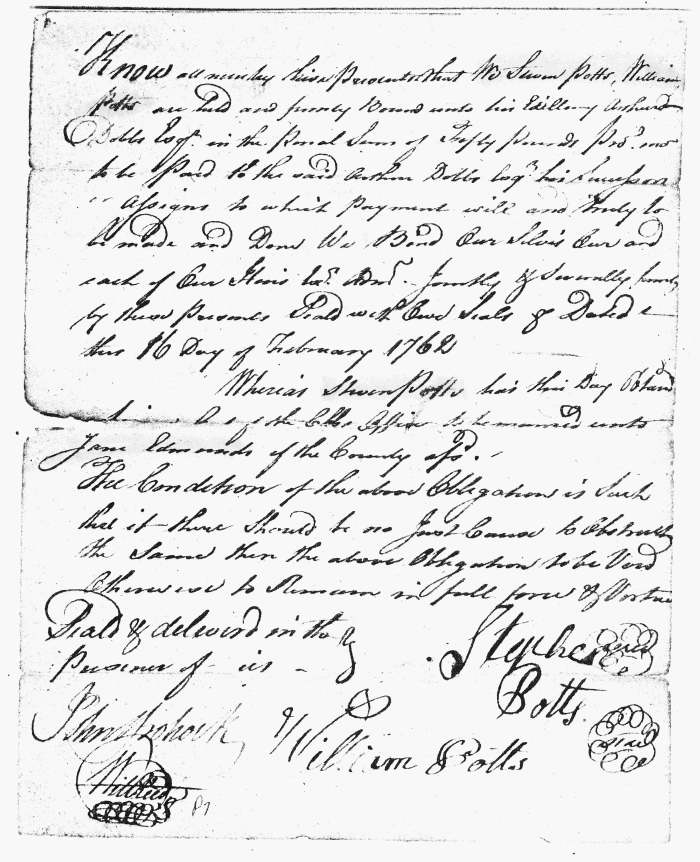 Know all men by these Presents that We Steven Potts, William
Potts are held and firmly Bound unto his Exellency Arthur
Dobbs Esqr. in the Penal Sum of Fifty Pounds Proc. mo
to be Paid to the said Arthur Dobbs Esqr. his Successors
Assigns to which Payment will and Truly to
be made and Done We Bind Our Selvis Our and
each of Our Heirs Exr. Admr. Jointly & Severally firmly
by these Presents Seald with Our Seals & Dated
this 16 Day of February 1762
Whereas Steven Potts has this Day Obtaind
of the Office to be married unto
Jane Edmunds of the County afsd.
The Condition of the above Obligation is Such
that if there Should be no Just Cause to Obstruct
the Same then the above Obligation to be Void
Otherwise to Remain in full force & Vertue
Seald & deliverd in the
Presence of us
Stephen Seal
Potts
William Potts Seal